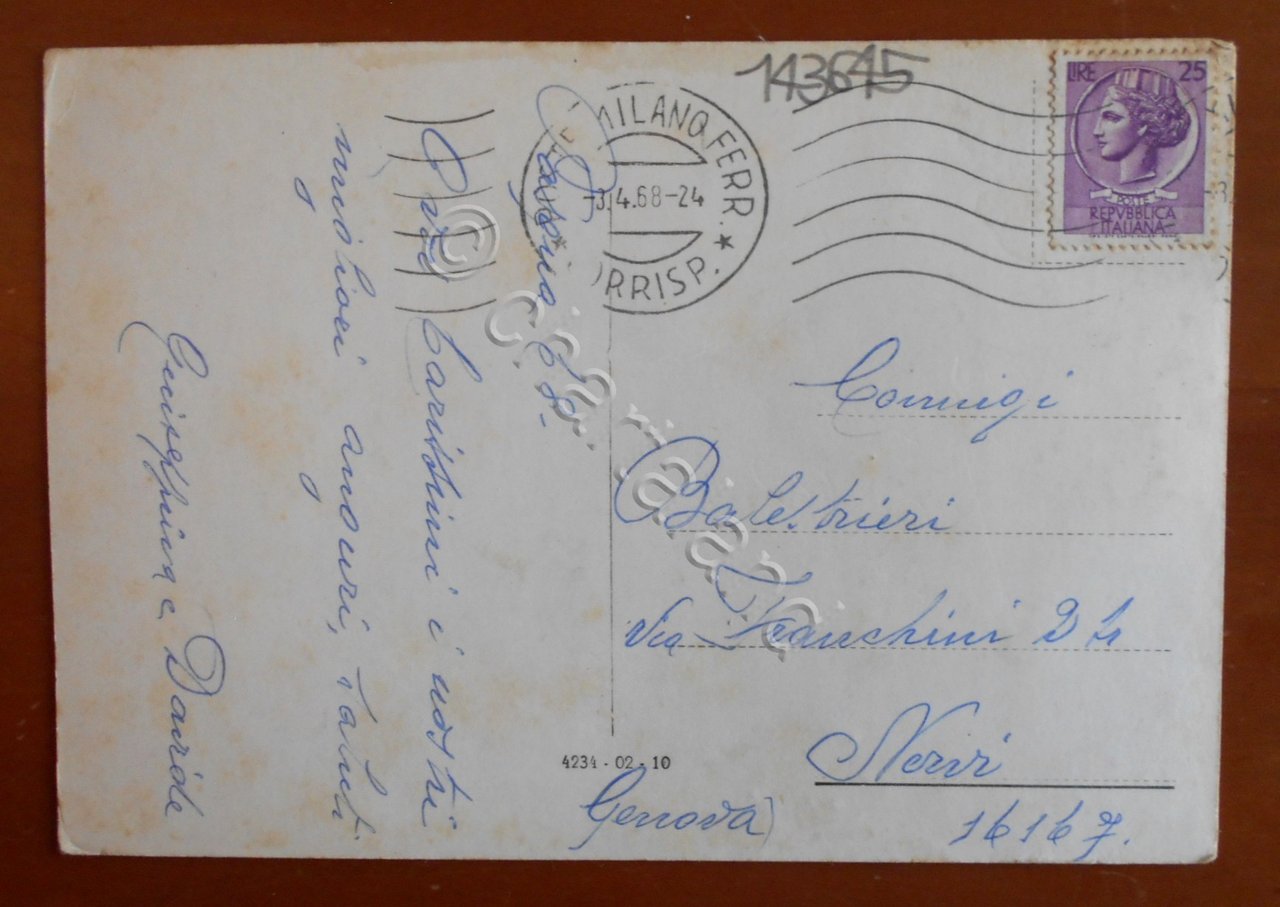 143645
LIRE 25
POSTE
REPVBBLICA
ITALIANA
MILANO FERR.
-3.4.68-24
CORRISP.
Pasqua 68-
A voi Carissimi i nostri
migliori auguri, Saluti
Giuseppina e Davide
Coniugi
Balestrieri
Via Franchini 2
Nervi
16167.
(Genova)
4234 - 02 - 10
© Cartariana